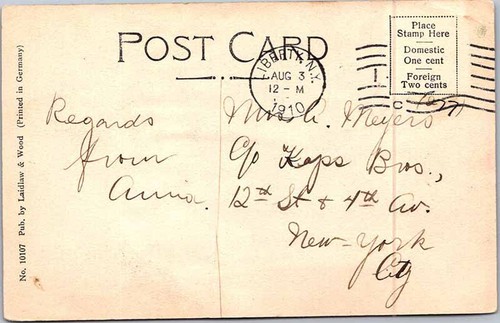 POST CARD
Place
Stamp Here
Domestic
One cent
Foreign
Two cents
LIBERTY, N.Y.
AUG 3
12 - M
1910
1
C
Regards
from
Anna.
Meyers
c/o Keps Bros.,
12th St & 4th Av.
New-York
City
No. 10107 Pub. by Laidlaw & Wood (Printed in Germany)